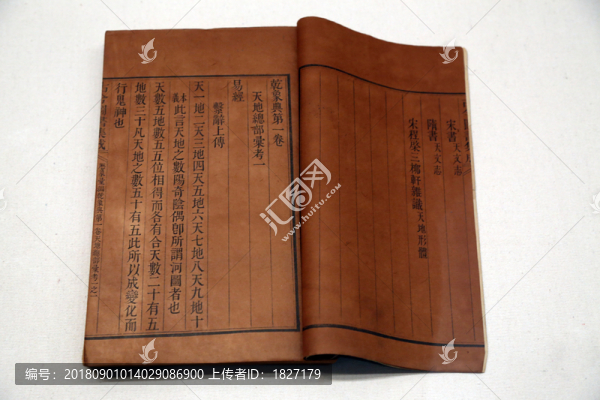 宋書天文志
隋書天文志
宋程榮三柳軒雜識天地形體
乾象典第一卷
天地總部彙考一
易經
繫辭上傳
天一地二天三地四天五地六天七地八天九地十
本義此言天地之數陽奇陰偶卽所謂河圖者也
天數五地數五五位相得而各有合天數二十有五
地數三十凡天地之數五十有五此所以成變化而
行鬼神也
汇图网
www.huitu.com
编号:20180901014029086900 上传者ID:1827179